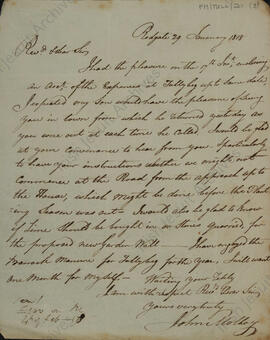 PM/TULL/21 (2)
Redgate 29 January 1818
Revd & dear Sir
I had the pleasure on the 17th Inst. enclosing
an Acct. of the Expences at Tullybeg up to same date
I expected my Son would have the pleasure of seeing
you in town from which he returned yesterday as
you were out at each time he called I would be glad
at your convenience to hear from you Particularly
to have your instructions whether we might not
Commence at the Road from the approach up to
the House, which might be done before the
Season was out I would also be glad to know
if Lime should be bought in or Stones quarried, for
the proposed new Garden Wall I have engaged the
Barrack Manure for Tullybeg for the Year I will want
one Month for myself
Waiting your Reply
I am with respect Revd Dear Sir
Yours very truly
John Molloy